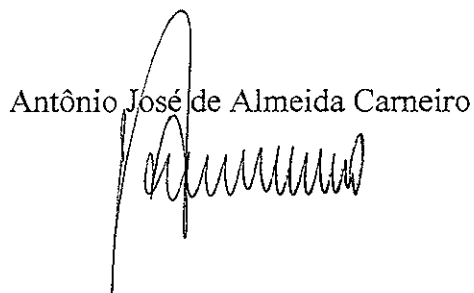 Antônio José de Almeida Carneiro